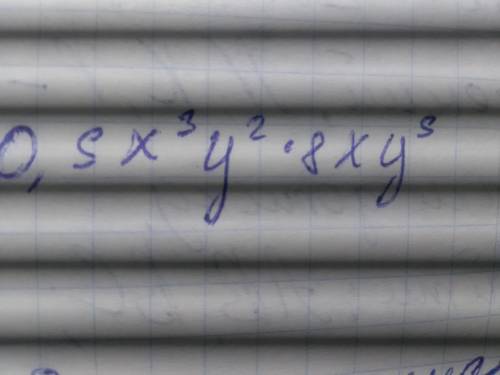 0,5x³y² · 8xy⁵